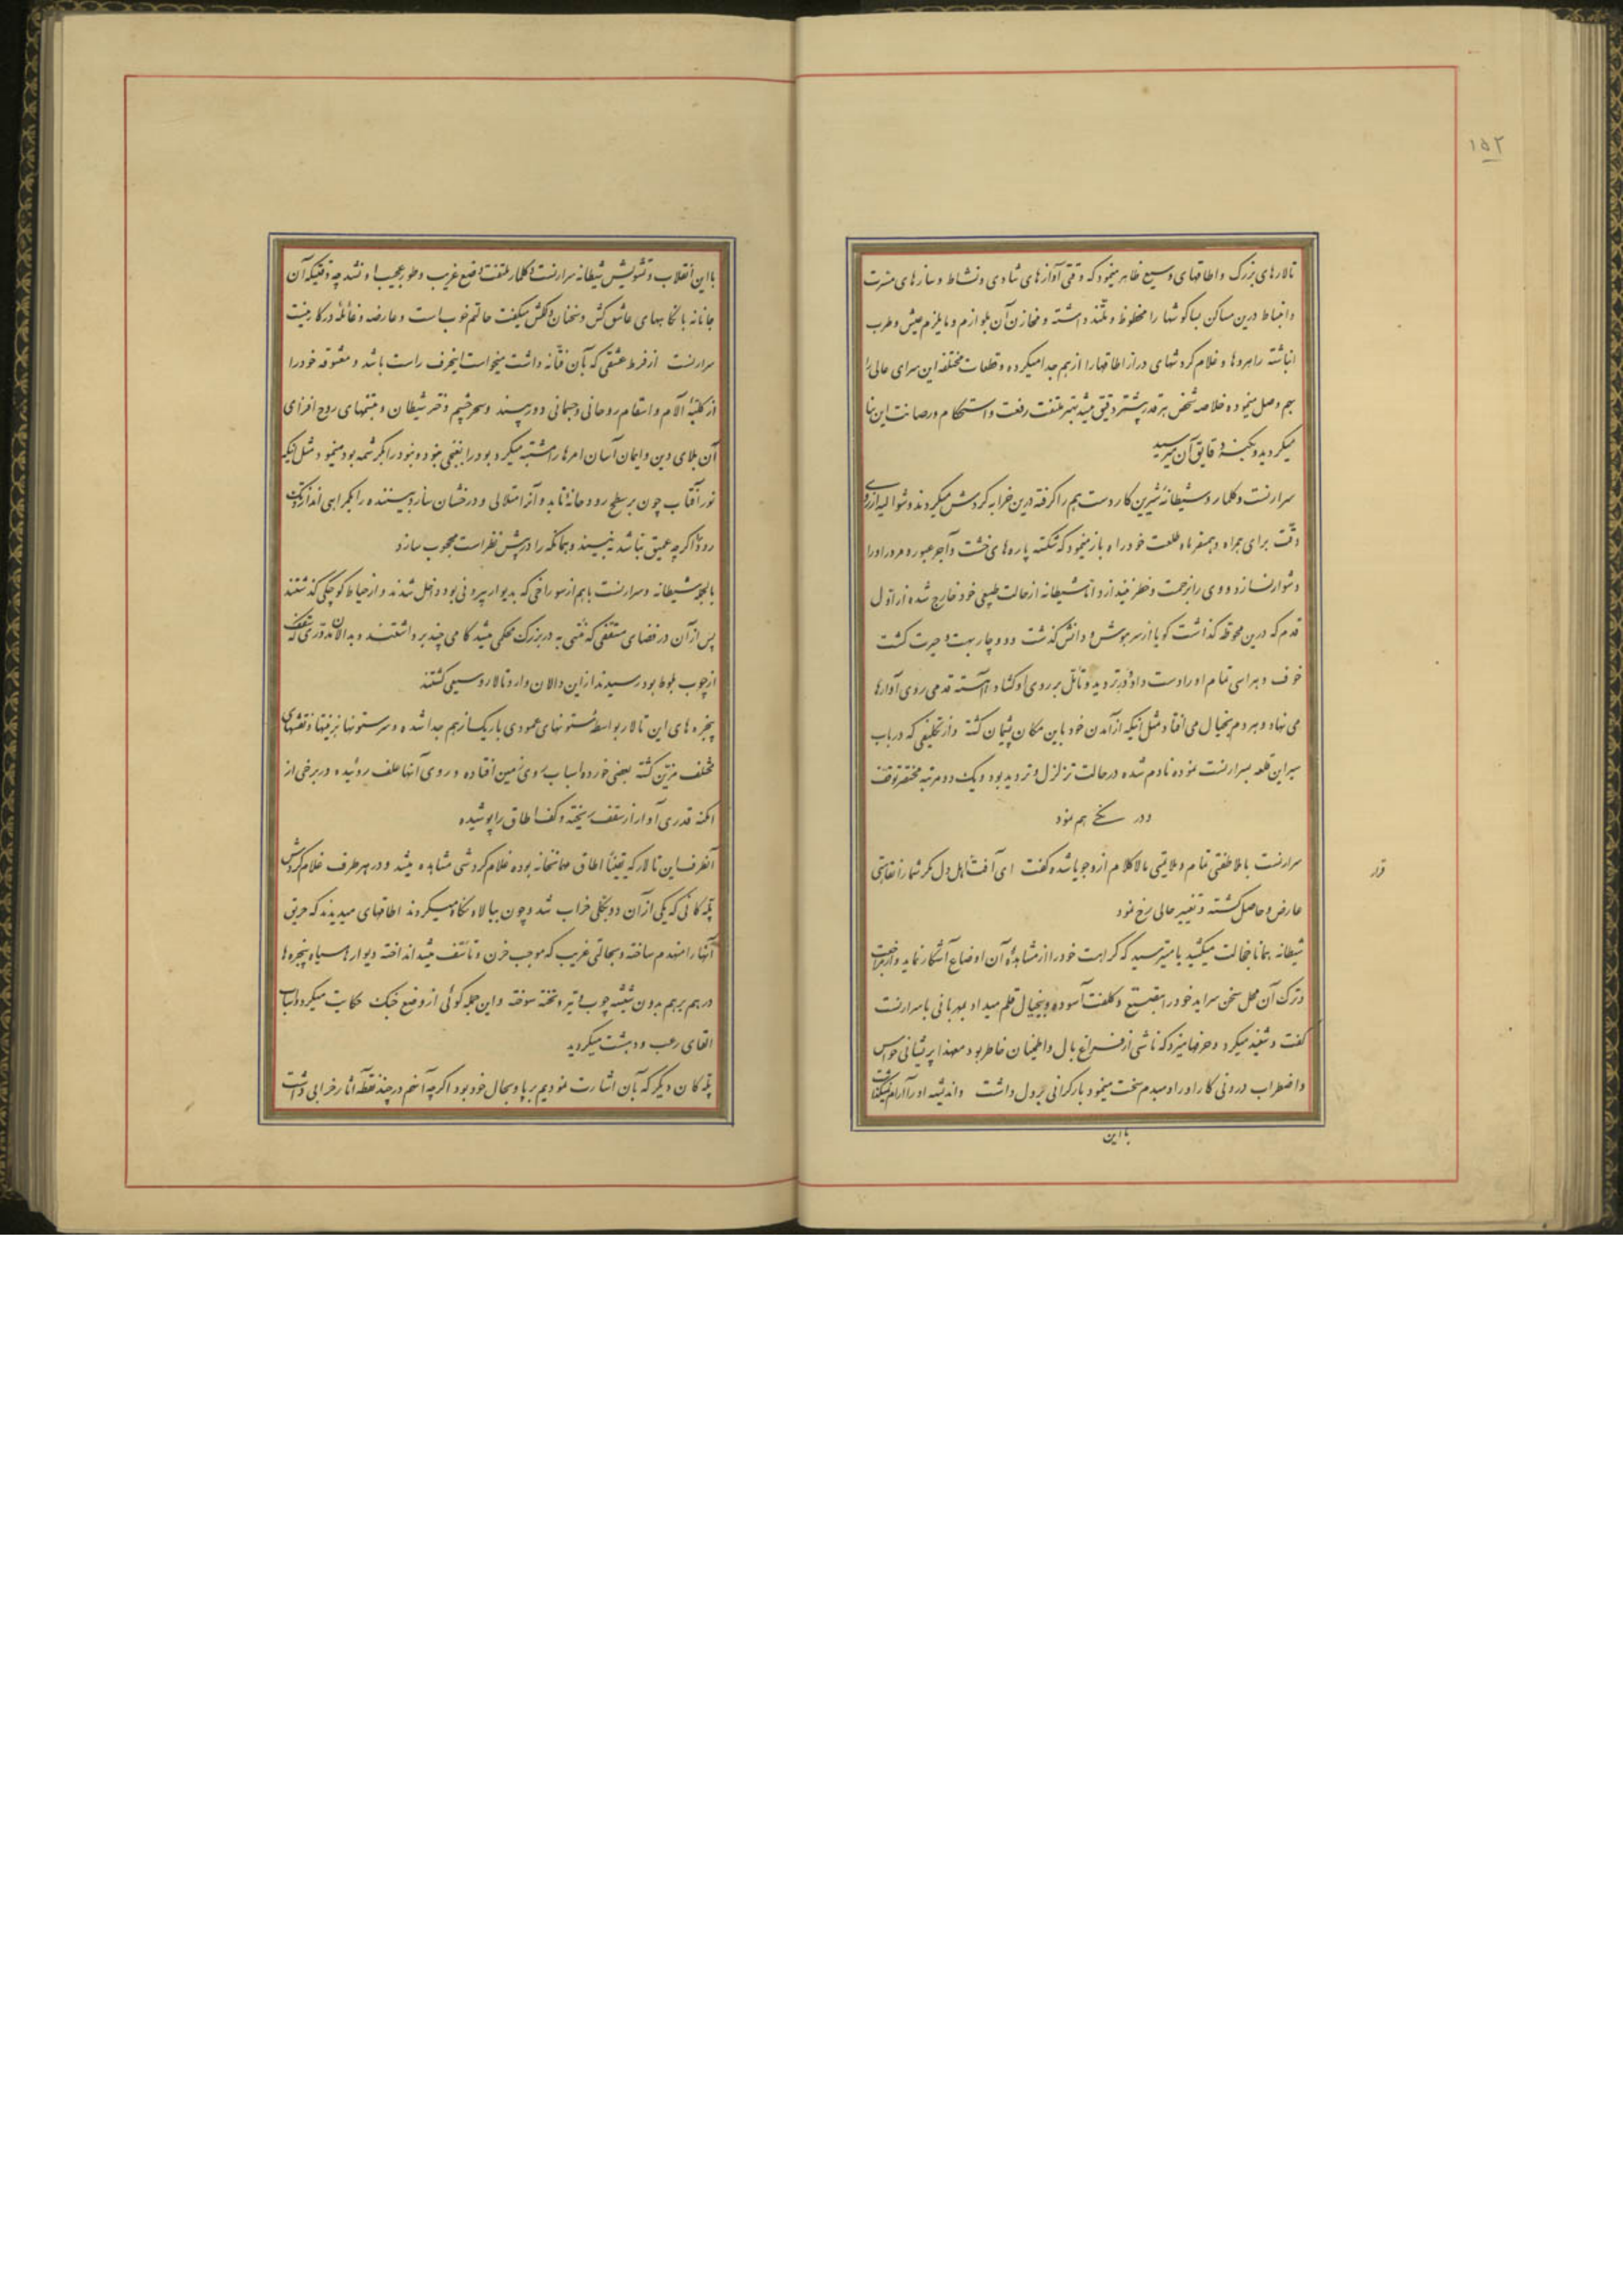 ۱۵۲
تالارهای بزرگ و اطاقهای وسیع ظاهر مینمود که وقتی آوازهای شادی و نشاط و سازهای مسرت
و انبساط درین مساکن بسا گوشها را محظوظ و ملتذ داشته و مخازن آن بلوازم و مایلزم عیش و طرب
انباشته راهروها و غلام گردشهای دراز اطاقها را از هم جدا میکرده و قطعات مختلفه این سرای عالی را
بهم وصل مینموده خلاصه شخص هر قدر بیشتر دقیق میشد بهتر ملتفت رفعت و استحکام و رصانت این بنا
میگردید و بکنه دقایق آن میرسید
سرارنست و کلمار و شیطانه شیرین کار دست هم را گرفته درین خرابه گردش میکردند و شوالیه از روی
دقت برای همراه و همسفر ماه طلعت خود راه باز مینمود که شکسته پاره های خشت و آجر عبور و مرور او را
دشوار نسازد و وی را بزحمت و خطر نیندازد اما شیطانه از حالت طبیعی خود خارج شده از اول
قدم که درین محوطه گذاشت گویا از سر هوش و دانش گذشت و دوچار بهت و حیرت گشت
خوف و هراسی تمام او را دست داده در تردید و تأمل بر روی او گشاد آهسته قدمی روی آوارها
می نهاد و هر دم بخیال می افتاد مثل اینکه از آمدن خود باین مکان پشیمان گشته و از تکلیفی که در باب
سیر این قلعه بسرارنست نموده نادم شده در حالت تزلزل و تردید بود و یک دو مرتبه مختصر توقف
و درنگی هم نمود
سرارنست با ملاطفتی تمام و ملایمتی مالاکلام ازو جویا شده گفت ای آفت اهل دل مگر شما را نقاهتی
عارض و حاصل گشته و تغییر حالی رخ نمود
شیطانه همانا خجالت میکشید یا میترسید که کراهت خود را از مشاهده آن اوضاع آشکار نماید و از مراجعت
و ترک آن محل سخن سراید خود را بتصنع و کلفت آسوده و بیخیال قلم میداد بمهربانی با سرارنست
گفت و شنید میکرد و حرفها میزد که ناشی از فراغ بال و اطمینان خاطر بود معهذا پریشانی حواس
و اضطراب درونی کار او را هر دم سخت مینمود بار گرانی بر دل داشت و اندیشه او را آرام نمیگذاشت
قرار
با این
با این انقلاب و تشویش شیطانه سرارنست دکلمار ملتفت وضع غریب و طور عجیب او نشد چه وقتیکه آن
جانانه با نگاههای عاشق کش و سخنان دلکش میگفت حالم خوب است و عارضه و غائله در کار نیست
سرارنست از فرط عشقی که بآن فتانه داشت میخواست اینحرف راست باشد و معشوقه خود را
از کلیه آلام و اسقام روحانی و جسمانی دور بیند و سحر چشم دختر شیطان و تبسمهای روح افزای
آن بلای دین و ایمان آسان امرها را مشتبه میکرد و بود را بغنجی نبود و نبود را بکرشمه بود مینمود مثل اینکه
نور آفتاب چون بر سطح رودخانه تابد و آنرا متلالی و درخشان سازد بیننده را بگمراهی اندازد و تک
رود اگرچه عمیق نباشد نبیند و همانکه را در پیش نظر است محجوب سازد
بالجمله شیطانه و سرارنست باهم از سوراخی که بدیوار بیرونی بود داخل شدند و از حیاط کوچکی گذشتند
پس از آن در فضای مسقفی که منتهی به در بزرگ محکمی میشد گامی چند برداشتند و بدالان مدوری که سقفش
از چوب بلوط بود رسیدند از این دالان وارد تالار وسیعی گشتند
پنجره های این تالار بواسطه ستونهای عمودی باریک از هم جدا شده و سر ستونها بزینتها و نقشهای
مختلف مزین گشته بعضی خورده اسباب روی زمین افتاده و روی آنها علف روئیده و در برخی از
امکنه قدری آوار از سقف ریخته و کف اطاق را پوشیده
آنطرف این تالار که یقینا اطاق مهمانخانه بوده غلام گردشی مشاهده میشد و در هر طرف غلام گردش
پله کانی که یکی از آن دو بکلی خراب شد و چون ببالا نگاه میکردند اطاقهای میدیدند که حریق
آنها را منهدم ساخته و بحالتی غریب که موجب حزن و تأسف میشد انداخته دیوارها سیاه پنجره ها
درهم برهم بدون شیشه چوب تیر و تخته سوخته و این جمله گوئی از وضع جنگ حکایت میکرد و اسباب
القای رعب و دهشت میگردید
پله کان دیگر که بآن اشارت نمودیم برپا و بحال خود بود اگرچه آنهم در چند نقطه آثار خرابی داشت